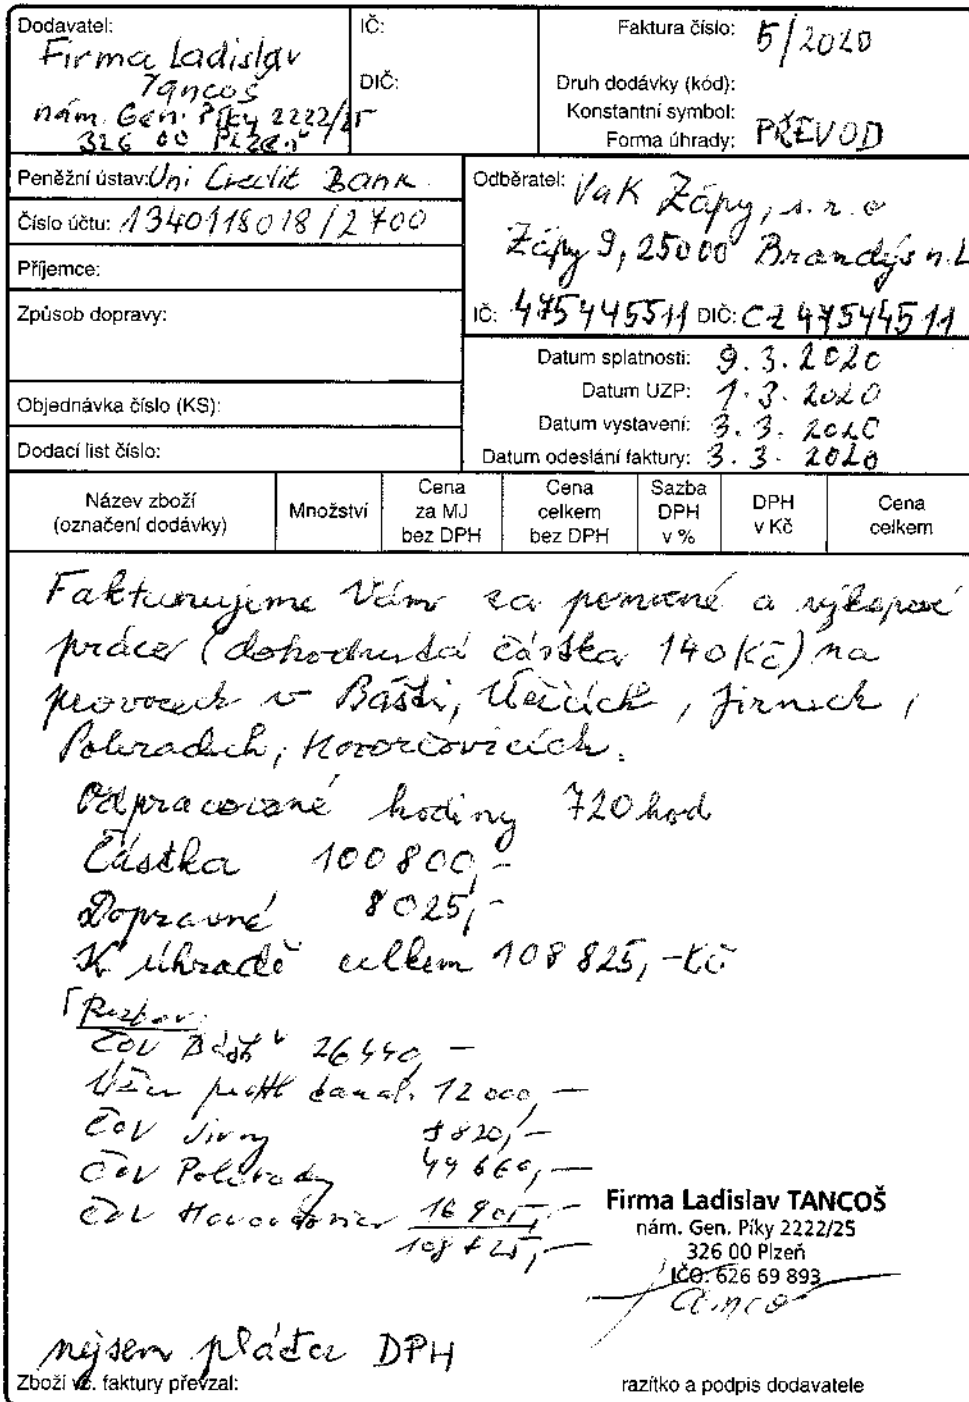 Dodavatel:
Firma Ladislav
Tancoš
nám. Gen. Píky 2222/25
326 00 Plzeň
IČ:
DIČ:
Faktura číslo: 5/2020
Druh dodávky (kód):
Konstantní symbol:
Forma úhrady: PŘEVOD
Peněžní ústav: Uni Credit Bank
Číslo účtu: 1340118018/2700
Příjemce:
Způsob dopravy:
Objednávka číslo (KS):
Dodací list číslo:
Odběratel: VaK Zápy, s.r.o
Zápy 9, 25000 Brandýs n.L
IČ: 475445511 DIČ: CZ 47544511
Datum splatnosti: 9.3.2020
Datum UZP: 1.3.2020
Datum vystavení: 3.3.2020
Datum odeslání faktury: 3.3.2020
Název zboží (označení dodávky)
Množství
Cena za MJ bez DPH
Cena celkem bez DPH
Sazba DPH v %
DPH v Kč
Cena celkem
Faktunujeme Vám za pomocné a výkopové
práce (dohodnutá částka 140 Kč) na
provozech v Bášti, Úžicích, Jirnech,
Poleradech, Hovorčovicích.
Odpracované hodiny 720 hod
Částka 100800,-
Dopravné 8025,-
K úhradě celkem 108 825,-Kč
ČOV Bášť 26440,-
12 000,-
ČOV Jirny 8820,-
ČOV Polerady 44660,-
ČOV Hovorčovice 16 905,-
108 825,-
Firma Ladislav TANCOŠ
nám. Gen. Píky 2222/25
326 00 Plzeň
IČO: 626 69 893
nejsem plátce DPH
Zboží vč. faktury převzal:
razítko a podpis dodavatele